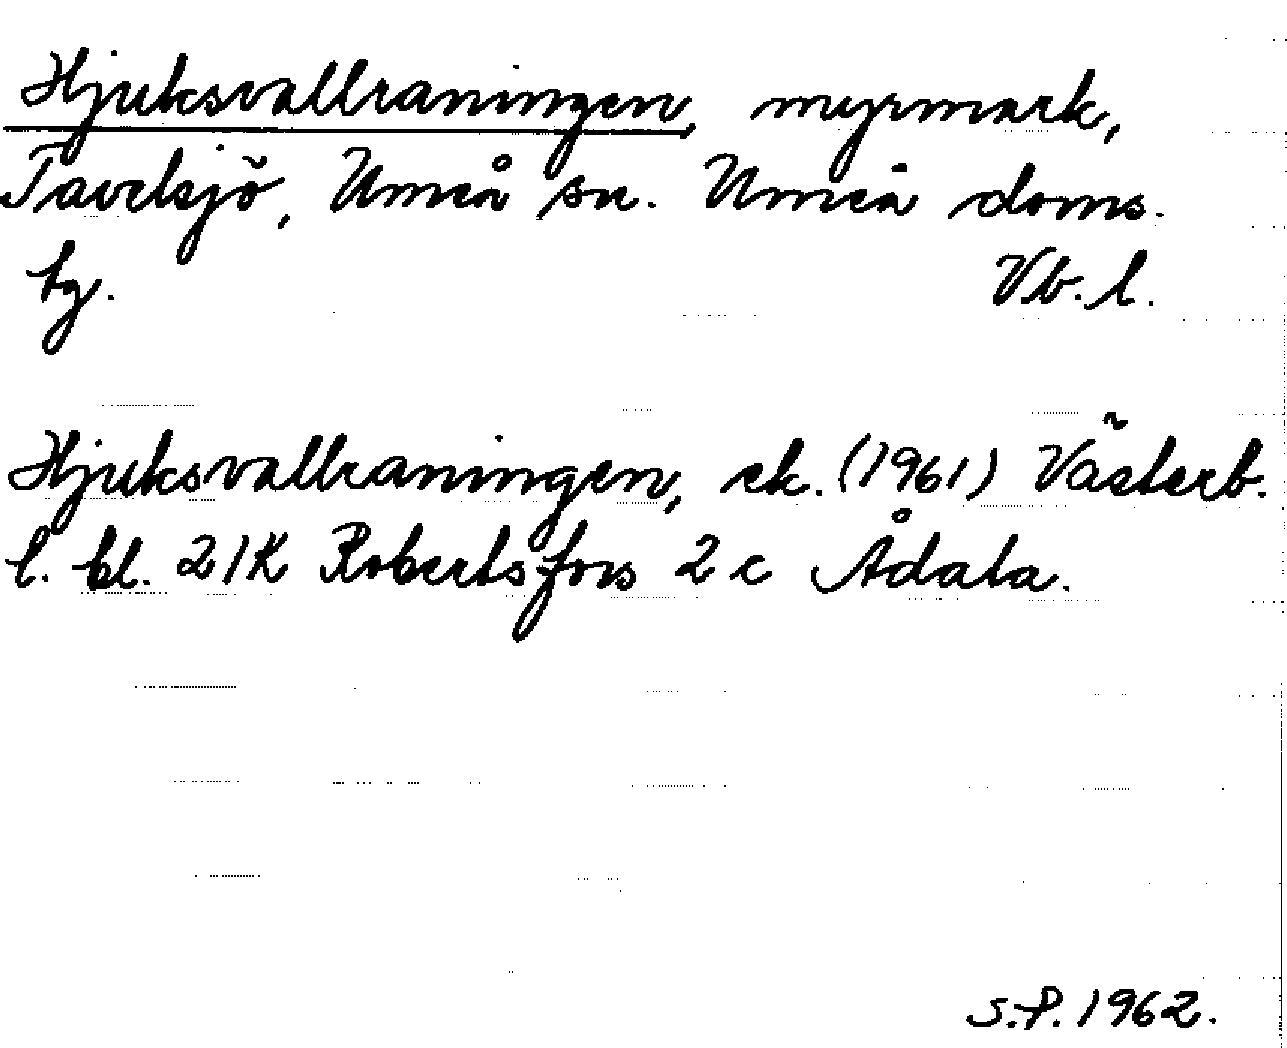 Hjuksvallraningen, myrmark,
Tavelsjö, Umeå sn. Umeå doms.
tg. Vb. l.
Hjuksvallraningen, ek. (1961) Västerb.
l. bl. 21K Robertsfors 2 c Ådala.
S.P. 1962.